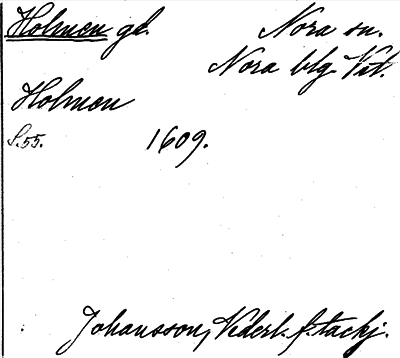 Holmen gd. Nora sn.
Nora blg. Vstl.
Holmen
S.55. 1609.
Johansson, Nederl. f. tackj.